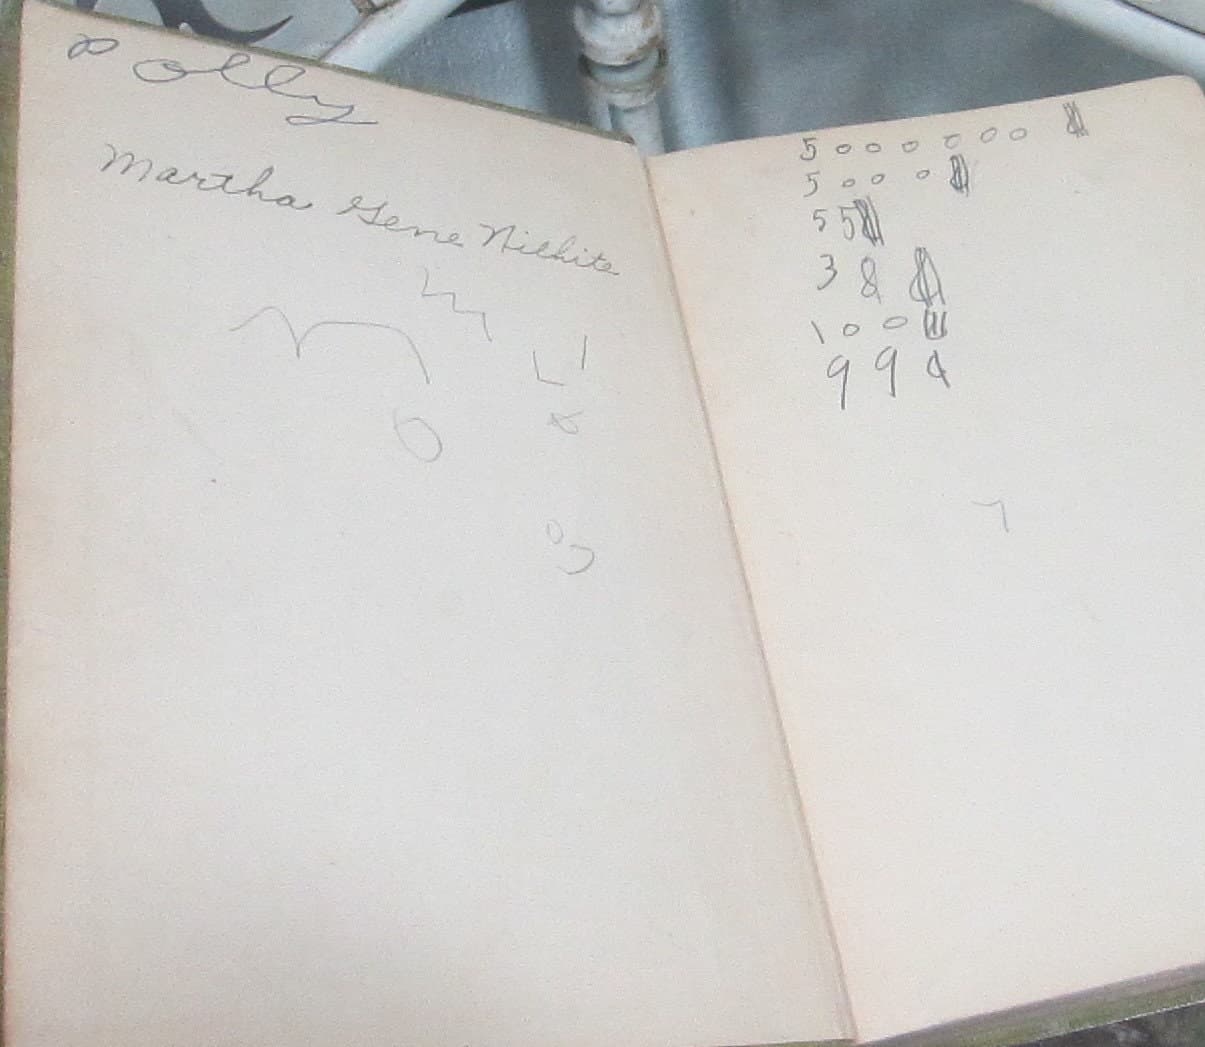 Polly
Martha Gene Nichite
5000000 $
5000 $
55 $
38 $
100 $
99 ¢
7